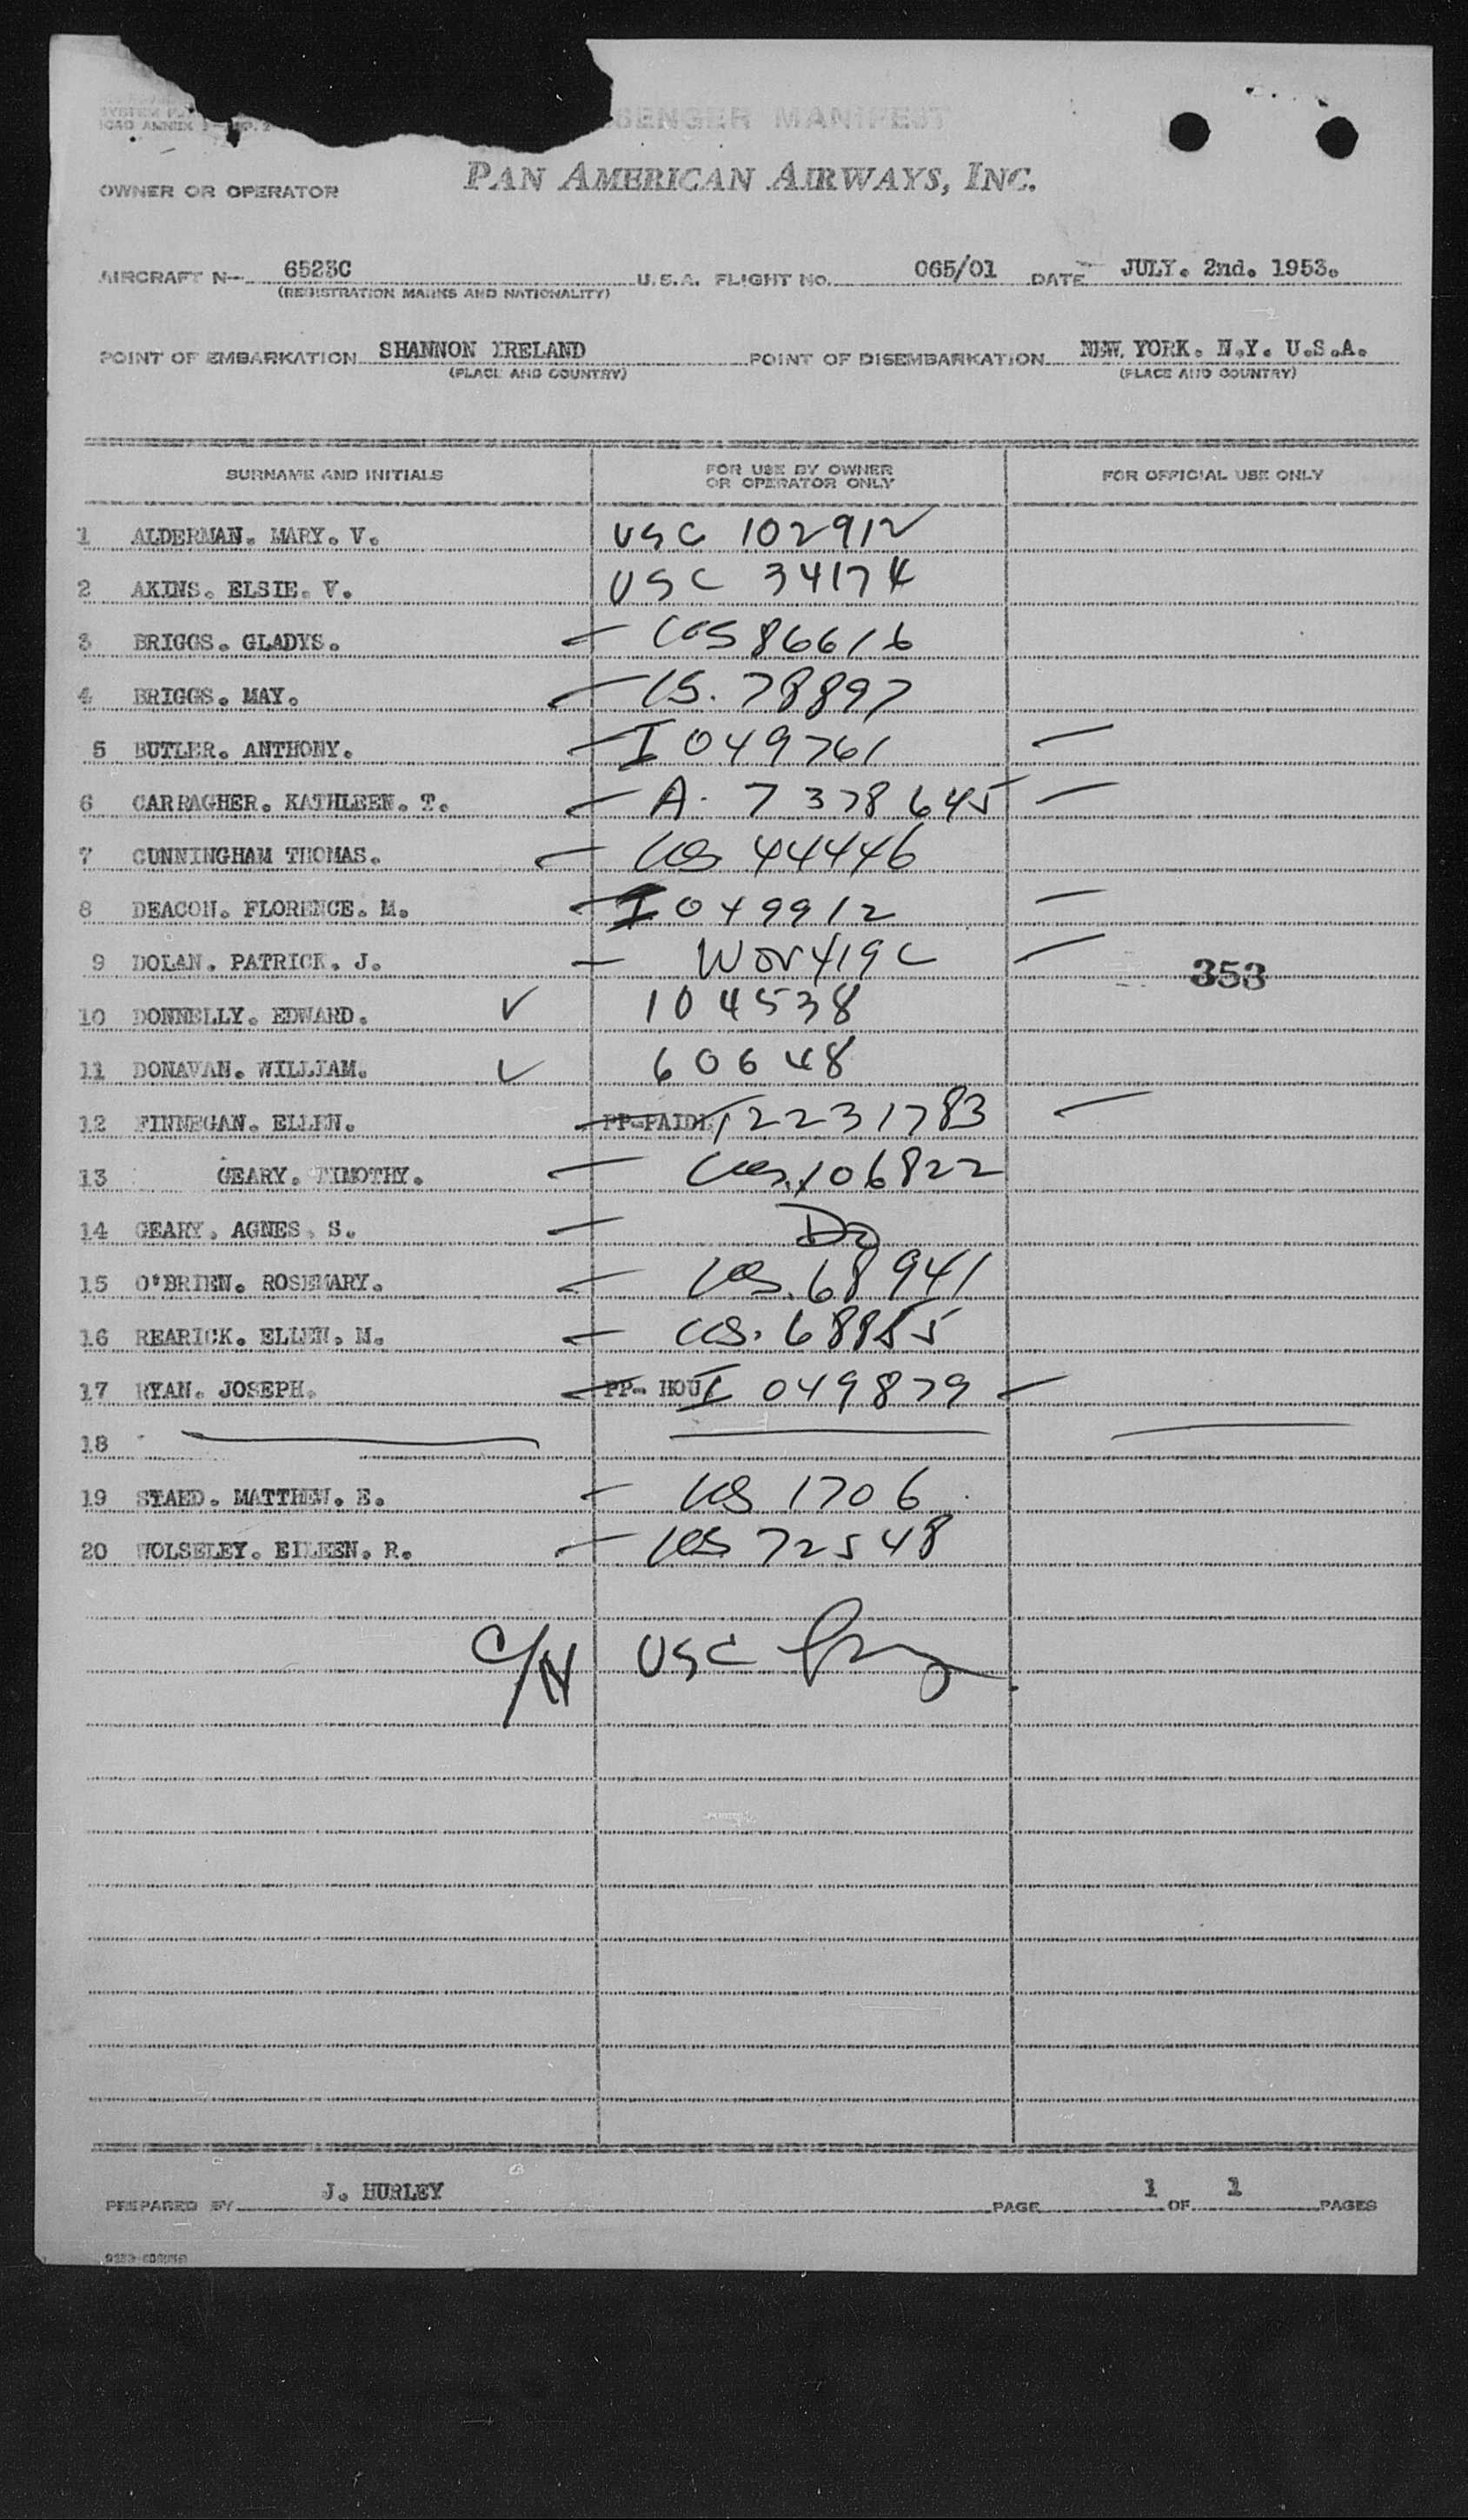 SENGER MANIFEST
ICAO ANNEX
PAN AMERICAN AIRWAYS, INC.
OWNER OR OPERATOR
AIRCRAFT N- 6523C U.S.A. FLIGHT NO. 065/01 DATE JULY. 2nd. 1953.
(REGISTRATION MARKS AND NATIONALITY)
POINT OF EMBARKATION SHANNON IRELAND POINT OF DISEMBARKATION NEW YORK. N.Y. U.S.A.
(PLACE AND COUNTRY) (PLACE AND COUNTRY)
SURNAME AND INITIALS FOR USE BY OWNER OR OPERATOR ONLY FOR OFFICIAL USE ONLY
1 ALDERMAN. MARY. V. USC 102912
2 AKINS. ELSIE. V. USC 34174
3 BRIGGS. GLADYS. — US 86616
4 BRIGGS. MAY. — US. 78897
5 BUTLER. ANTHONY. — I 049761 —
6 CARRAGHER. KATHLEEN. T. — A. 7378645 —
7 CUNNINGHAM THOMAS. — US 44446
8 DEACON. FLORENCE. M. — I 049912 —
9 DOLAN. PATRICK. J. — 419 C — 353
10 DONNELLY. EDWARD. ✓ 104538
11 DONAVAN. WILLIAM. ✓ 60648
12 FINNEGAN. ELLEN. — PP-PAID 2231783 —
13 GEARY. TIMOTHY. — US. 106822
14 GEARY. AGNES. S. — Do
15 O'BRIEN. ROSEMARY. — US. 68941
16 REARICK. ELLEN. M. — US. 68855
17 RYAN. JOSEPH. — PP- HOU I 049879 —
18
19 STAED. MATTHEW. E. — US 1706
20 WOLSELEY. EILEEN. R. — US 72548
C/N USC
PREPARED BY J. HURLEY PAGE 1 OF 1 PAGES